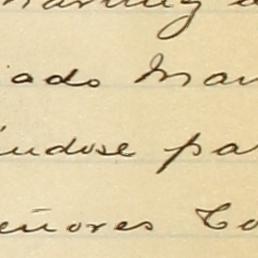 iado Man
indose pa
eñores Co